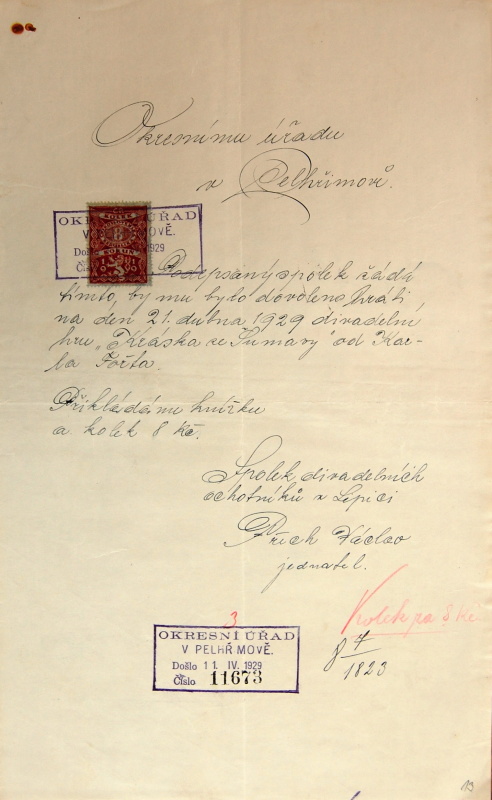 Okresnímu úřadu
v Pelhřimově.
OKRESNÍ ÚŘAD
V PELHŘIMOVĚ.
Došlo 1929
Číslo
KOLEK
8
KORUN
Podepsaný spolek žádá
tímto, by mu bylo dovoleno hráti
na den 21. dubna 1929 divadelní
hru „Kráska ze Šumavy" od Kar-
la Fořta.
Přikládáme knížku
a kolek 8 Kč.
Spolek divadelních
ochotníků v Lepici
Pěch Václav
jednatel.
Kolek za 8 Kč
3
OKRESNÍ ÚŘAD
V PELHŘIMOVĚ.
Došlo 11 IV. 1929
Číslo 11673
8 7/1823
19